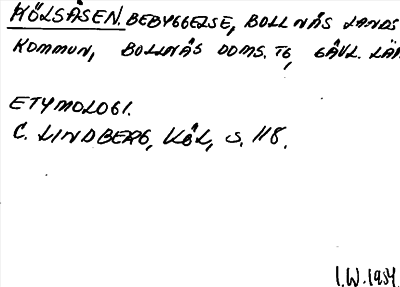 KÖLSÅSEN. BEBYGGELSE, BOLLNÄS LANDS
KOMMUN, BOLLNÄS DOMS. TG, GÄVL. LÄN
ETYMOLOGI.
C. LINDBERG, KÖL, S. 118.
I.W. 1954.